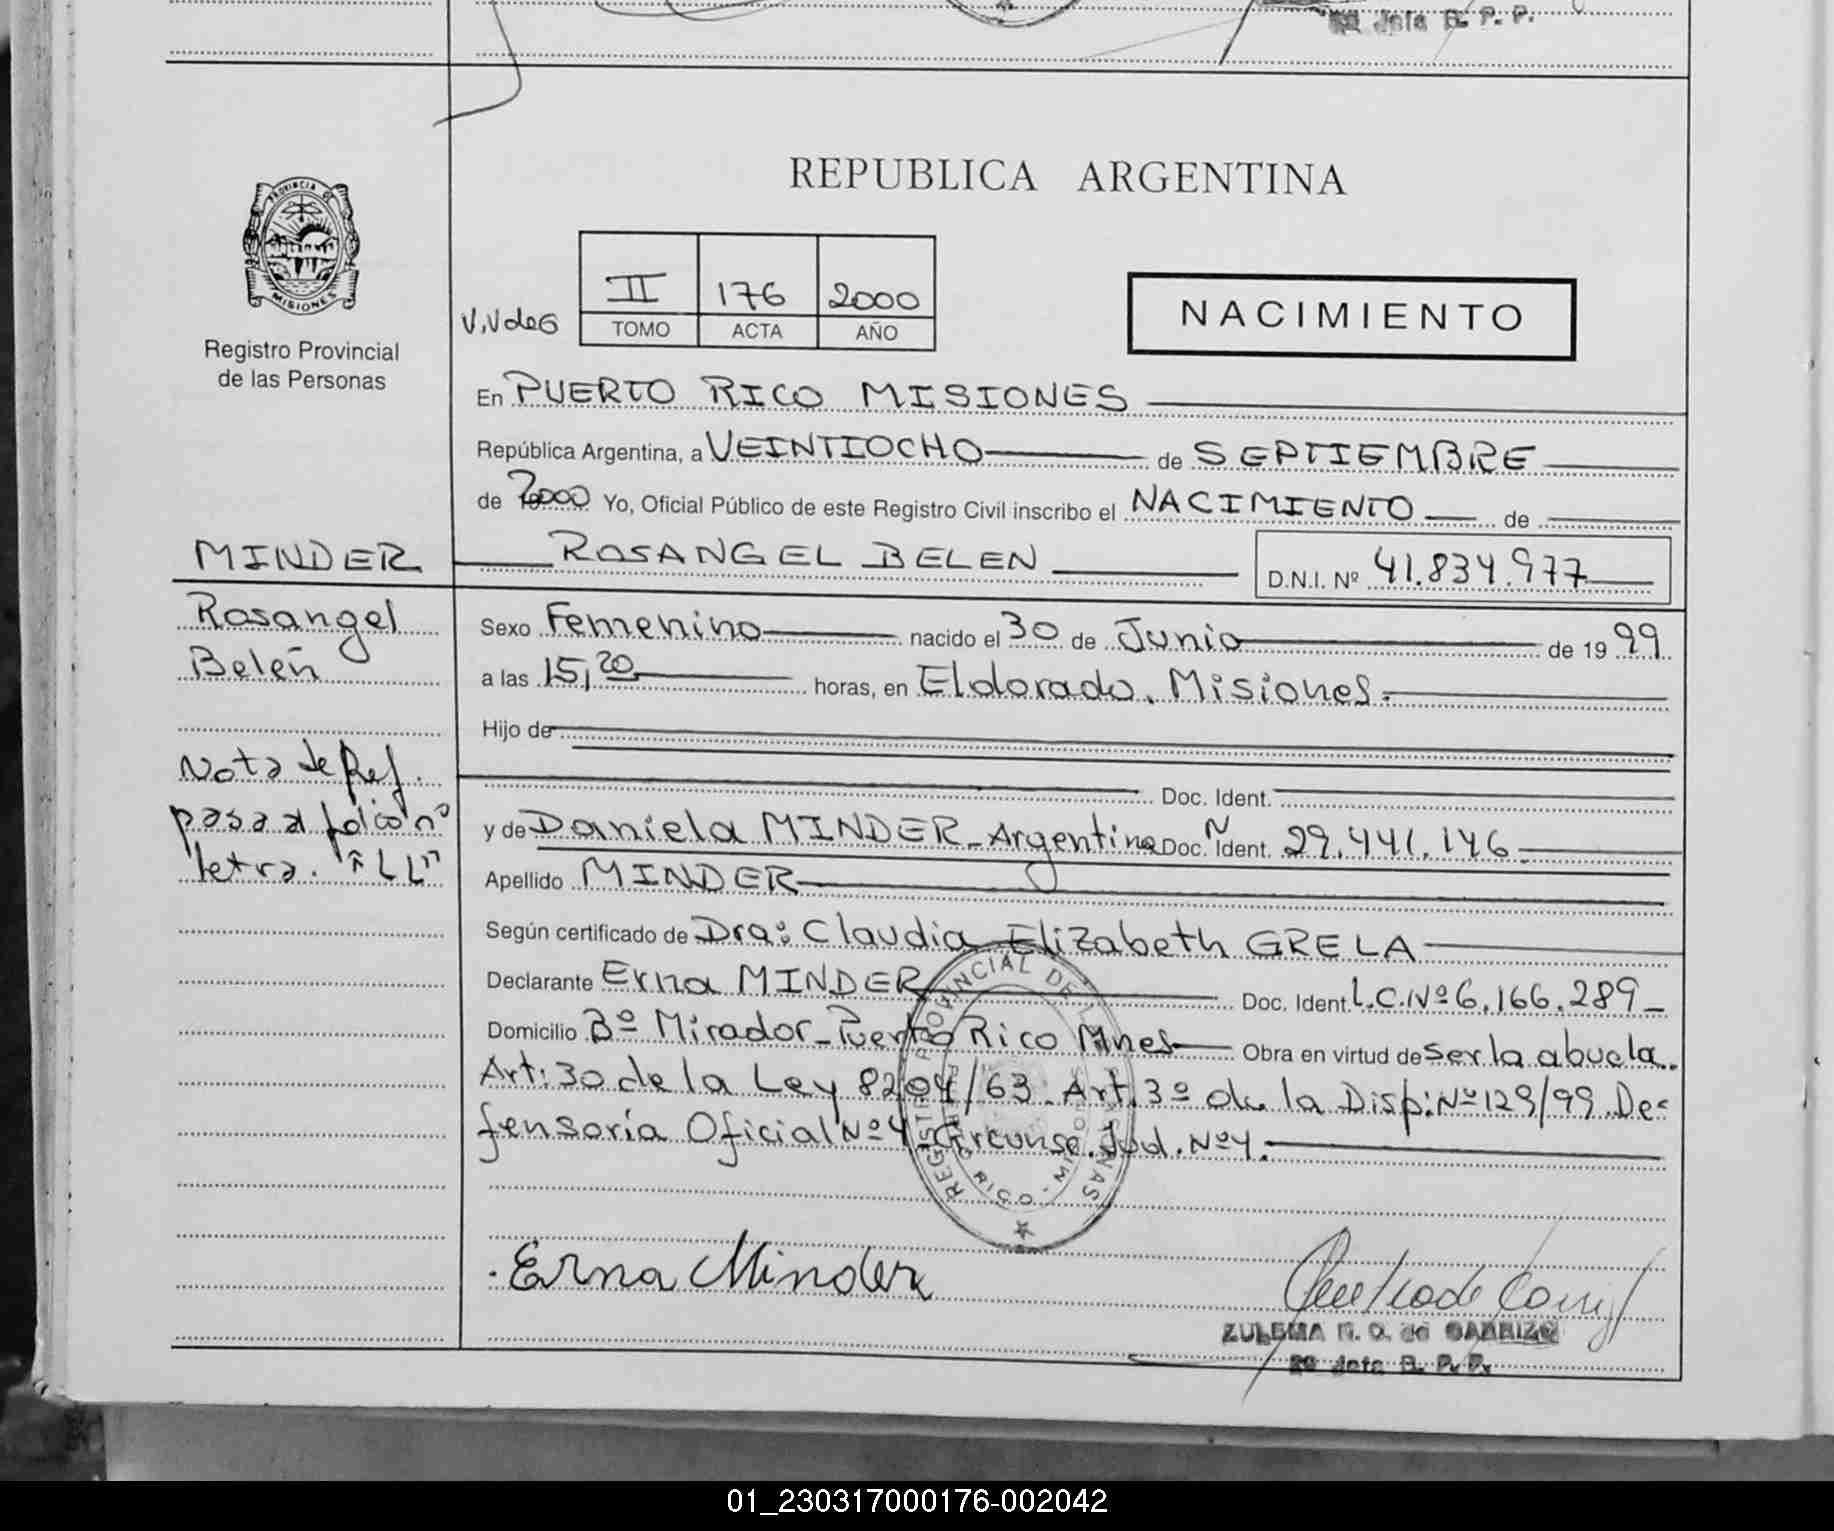 2º Jefe B. P. P.
PROVINCIA DE
MISIONES
Registro Provincial
de las Personas
REPUBLICA ARGENTINA
II 176 2000
TOMO ACTA AÑO
NACIMIENTO
En PUERTO RICO MISIONES
República Argentina, a VEINTIOCHO de SEPTIEMBRE
de 2000 Yo, Oficial Público de este Registro Civil inscribo el NACIMIENTO de
MINDER ROSANGEL BELEN D.N.I. Nº 41.834.977
Rosangel
Belén
Sexo Femenino nacido el 30 de Junio de 1999
a las 15,20 horas, en Eldorado. Misiones.
Hijo de
Doc. Ident.
y de Daniela MINDER - Argentina Doc. Ident. N 29.441.146
Apellido MINDER
Nota de Ref.
pasa al folio nº
letra. "LL"
Según certificado de Dra: Claudia Elizabeth GRELA
Declarante Erna MINDER Doc. Ident. L.C.Nº 6.166.289
Domicilio Bº Mirador - Puerto Rico Mnes Obra en virtud de ser la abuela.
Art: 30 de la Ley 8204/63. Art. 3º de la Disp: Nº 129/99 De=
fensoría Oficial Nº 4 Circunsc. Jud. Nº 4.
REGISTRO PROVINCIAL DE LAS PERSONAS
PUERTO RICO - MISIONES
Erna Minder
ZULEMA
2º Jefe B. P. P.
01_230317000176-002042